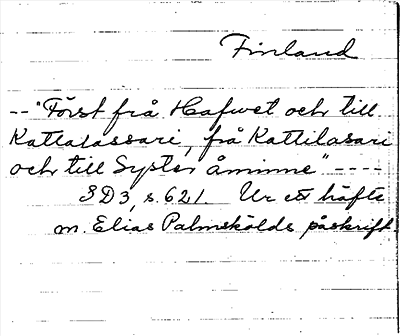 Finland
--"Först frå Hafwet och till
Kattalassari, frå Kattilasari
och till Syster åminne" ----
SD3, s. 621. Ur ett häfte
m. Elias Palmskölds påskrift.